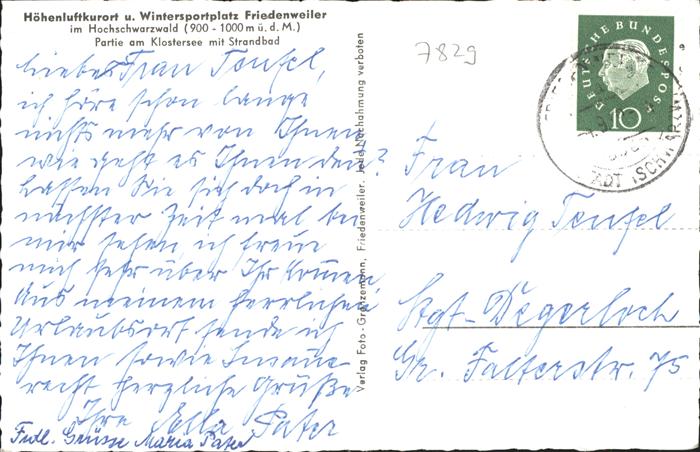 Höhenluftkurort u. Wintersportplatz Friedenweiler
im Hochschwarzwald (900 - 1000 m ü. d. M.)
Partie am Klostersee mit Strandbad
liebes Frau Teufel,
ich höre schon lange
nichts mehr von Ihnen
wie geht es Ihnen den?
Lassen Sie sich doch in
nächster Zeit mal bei
mir sehen ich freue
mich sehr über Ihr kommen
Aus meinem herrlichen
Urlaubsort sende ich
Ihnen sowie
recht herzliche Grüße
Ihre Ella Pater
Frdl. Grüsse Maria Pater
Verlag Foto - Grenzemann, Friedenweiler. Jede Nachahmung verboten
7829
DEUTSCHE BUNDESPOST
10
Frau
Hedwig Teufel
Stgt-Degerloch
Gr. Falterstr. 75